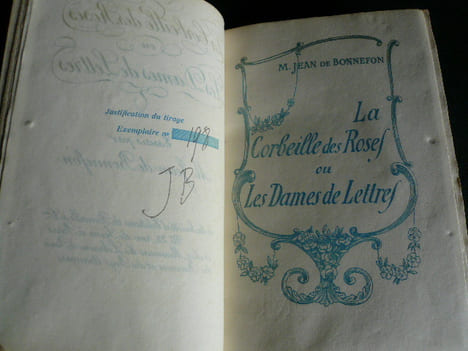 Justification du tirage
Exemplaire no 198
JB
M. JEAN DE BONNEFON
La
Corbeille des Roses
ou
Les Dames de Lettres